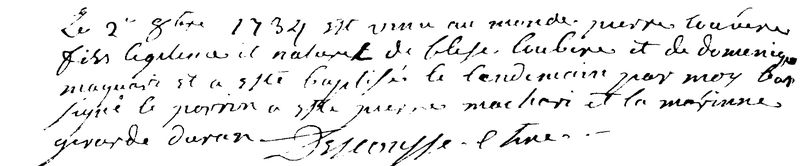 Le 2e 8bre 1734 est venu au monde pierre loubere
fils legitime et naturel de blese loubere et de domenique
maquari et a este baptisés le lendemain par moy bas
signé le parrin a este pierre machari et la marinne
girarde duran Descousse